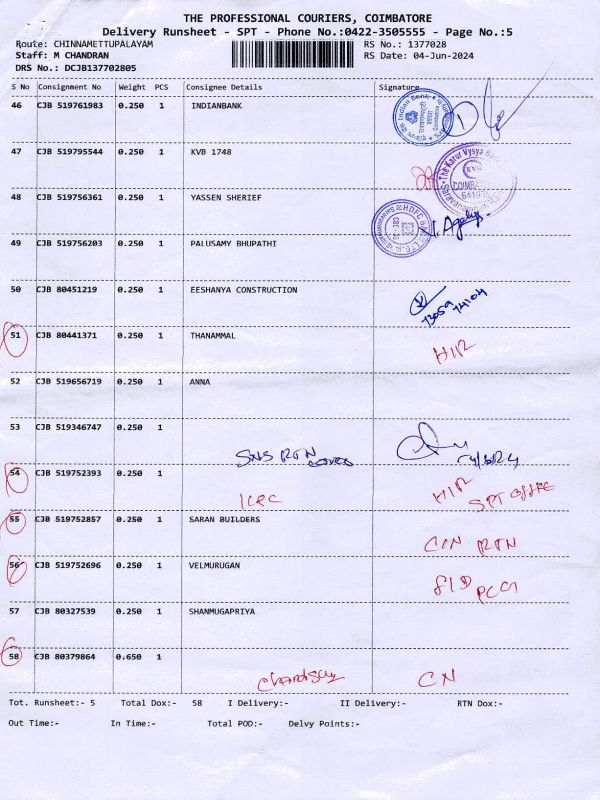 THE PROFESSIONAL COURIERS, COIMBATORE
Delivery Runsheet - SPT - Phone No.:0422-3505555 - Page No.:5
Route: CHINNAMETTUPALAYAM RS No.: 1377028
Staff: M CHANDRAN RS Date: 04-Jun-2024
DRS No.: DCJB137702805
S No Consignment No Weight PCS Consignee Details Signature
46 CJB 519761983 0.250 1 INDIANBANK
47 CJB 519795544 0.250 1 KVB 1748
48 CJB 519756361 0.250 1 YASSEN SHERIEF
49 CJB 519756203 0.250 1 PALUSAMY BHUPATHI
50 CJB 80451219 0.250 1 EESHANYA CONSTRUCTION
73059 74104
51 CJB 80441371 0.250 1 THANAMMAL
HIR
52 CJB 519656719 0.250 1 ANNA
53 CJB 519346747 0.250 1
SNS RTN
54 CJB 519752393 0.250 1
HIR
SPT OFFRE
55 CJB 519752857 0.250 1 SARAN BUILDERS
C/N RTN
56 CJB 519752696 0.250 1 VELMURUGAN
57 CJB 80327539 0.250 1 SHANMUGAPRIYA
58 CJB 80379864 0.650 1
CN
Tot. Runsheet:- 5 Total Dox:- 58 I Delivery:- II Delivery:- RTN Dox:-
Out Time:- In Time:- Total POD:- Delvy Points:-